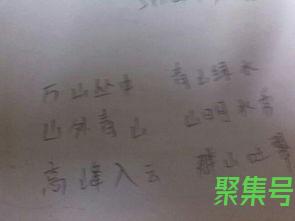 万山丛中 青山绿水
山外青山 山明水秀
高峰入云 群山叠翠
聚集号